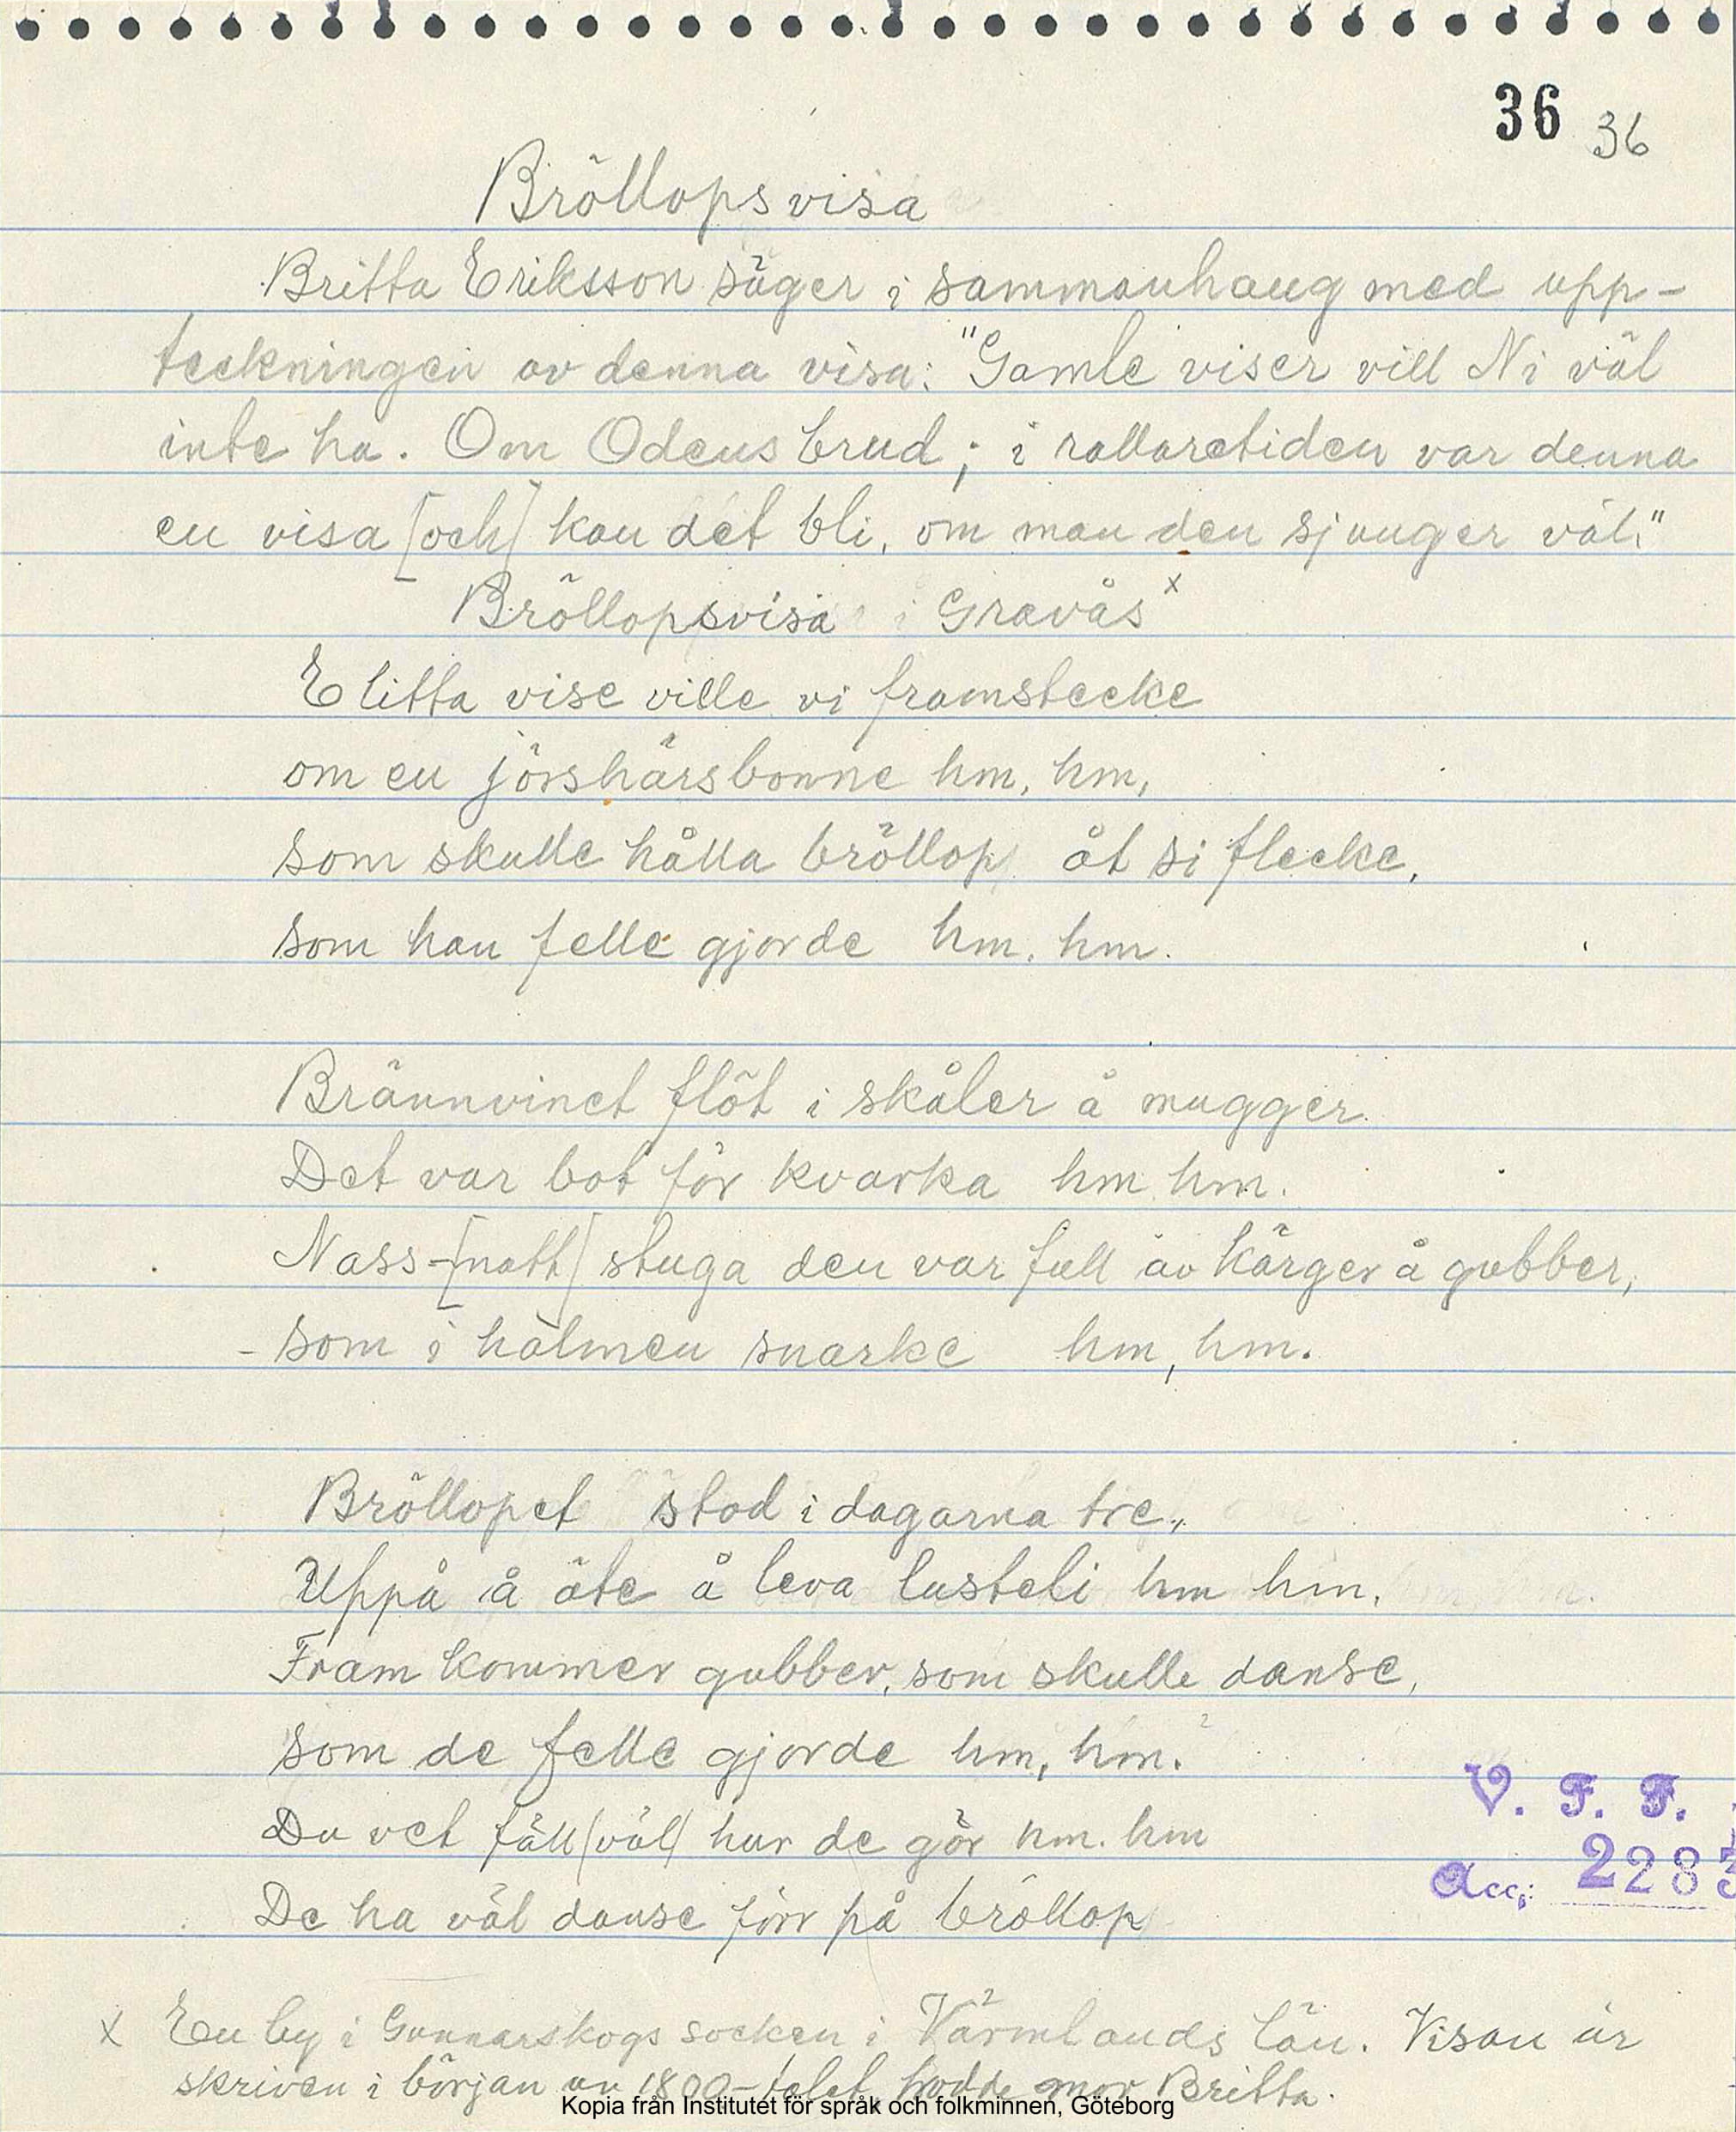 36 36
Bröllopsvisa
Britta Eriksson säger i sammanhang med upp-
teckningen av denna visa: "Gamle viser vill Ni väl
inte ha. Om Odens brud; i rallaretiden var denna
en visa [och] kan det bli, om man den sjunger väl."
Bröllopsvisa i Gravås x
E litta vise ville vi framstecke
om en jösshärsbonne hm, hm,
som skulle hålla bröllop åt si flecke,
som han felle gjorde hm, hm.
Brännvinet flöt i skåler å mugger.
Det var bot för kvarka hm hm.
Nass-[natt] stuga den var full av kärger å gubber,
- som i halmen snarke hm, hm.
Bröllopet stod i dagarna tre,
Uppå å äte å leva lusteli hm hm.
Fram kommer gubber, som skulle danse,
som de felle gjorde hm, hm.
Du vet fäll (väl) hur de gör hm. hm
De ha väl danse förr på bröllop
V. F. F.
Acc; 2283
x En by i Gunnarskogs socken i Värmlands län. Visan är
skriven i början av 1800-talet trodde mor Britta.
Kopia från Institutet för språk och folkminnen, Göteborg